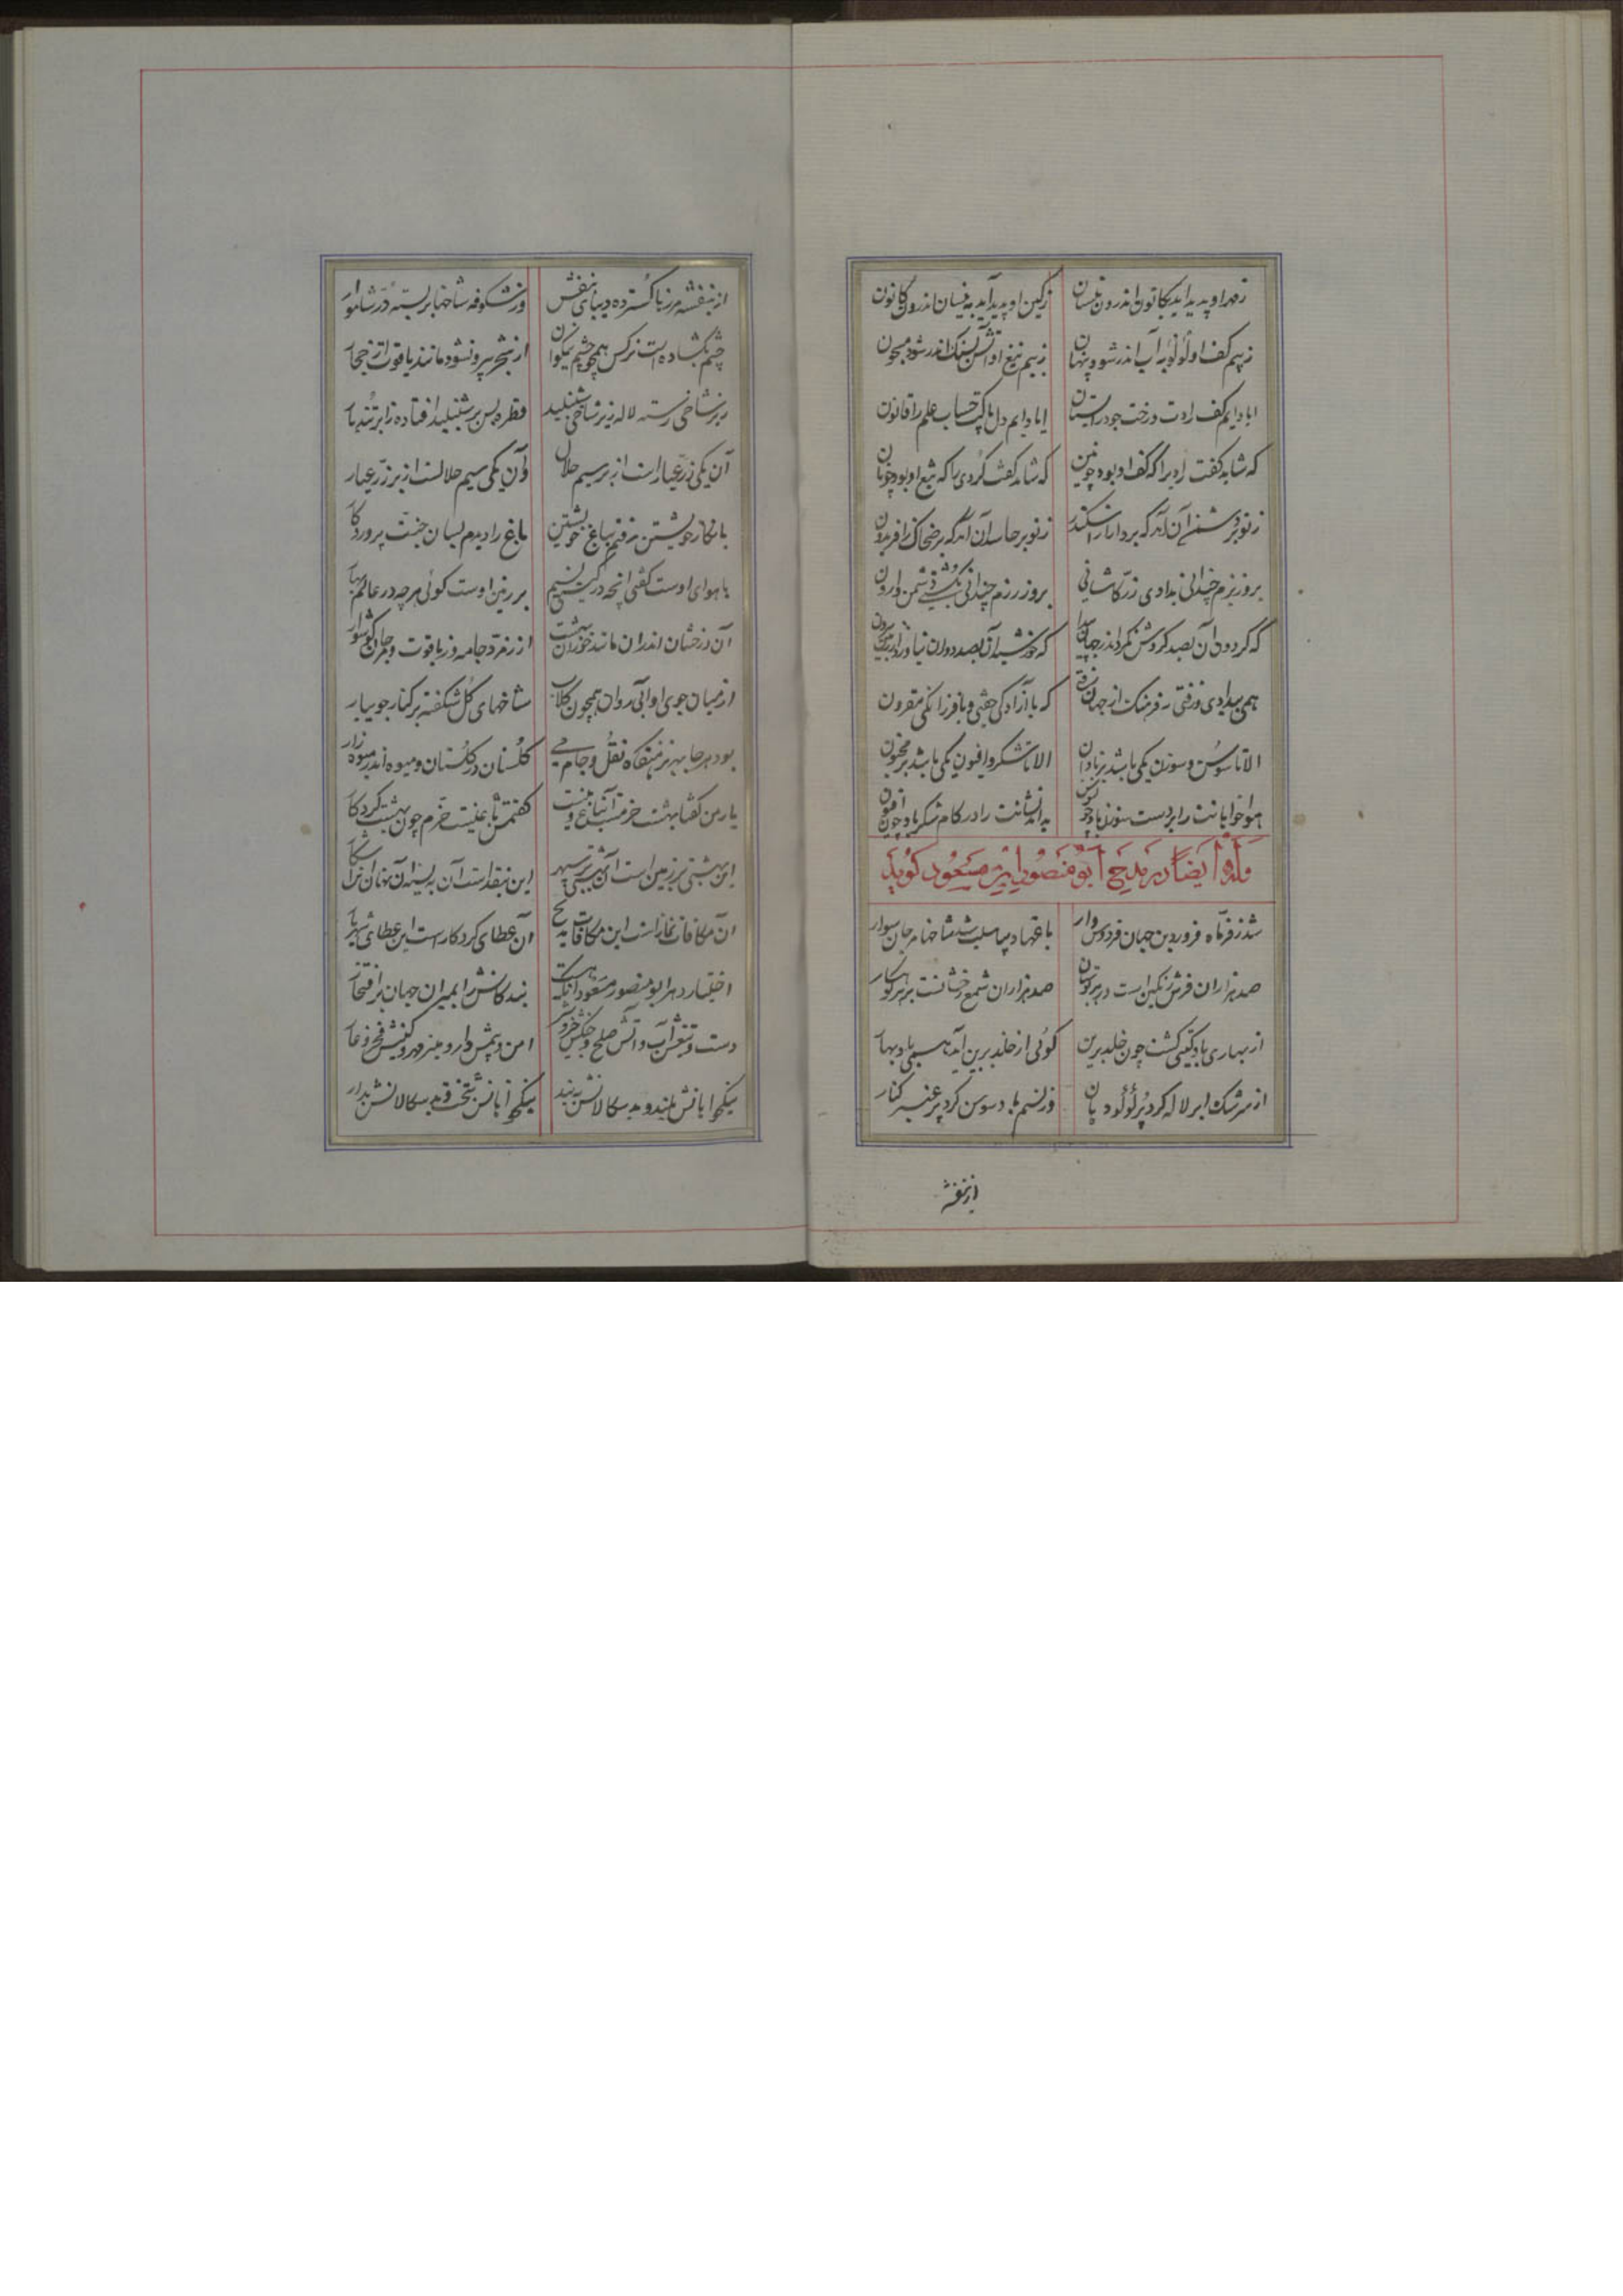 ز مهر او پدید آید بکانون اندرون نیسان ز کین او پدید آید به نیسان اندرون کانون
ز بیم کف او لؤلؤ به آب اندر شود پنهان ز بیم تیغ او آتش بسنگ اندر شود مسجون
ایا دایم کف رادت درخت جود را بستان ایا دایم دل پاکت حساب علم را قانون
که شاید گفت رادی را که کف او بود چونین که شاید گفت گردی را که تیغ او بود چونان
ز تو بر دشمنان آن آمد که بر دارا ز اسکندر ز تو بر حاسدان آن آمد که بر ضحاک از افریدون
بروز بزم چندانی بدادی زر کاشانی بروز رزم چندانی بکشتی دشمن وارون
که گردون آن بصد گردش نکرد اندر جهان پیدا که خورشید آن بصد دوران نیاورد از زمین بیرون
همی بیدادی و زفتی به فرسنگ از جهان که با آزادگی جفتی و با فرزانگی مقرون
الا تا سوسن و سوزن یکی باشد بر نادان الا تا شکر و افیون یکی باشد بر مجنون
هواخواهانت را بر دست سوزن باد چون سوسن بداندیشانت را در کام شکر باد چون افیون
وله ایضا در مدح ابو منصور بن مسعود گوید
شد ز فر ماه فروردین جهان فردوس وار باغها دیبا سلب شد شاخها مرجان سوار
صد هزاران فرش رنگین است در هر بوستان صد هزاران شمع رخشانست بر هر کوهسار
از بهاری باد گیتی گشت چون خلد برین گوئی از خلد برین آید همی باد بهار
از سرشک ابر لاله کرد پر لؤلؤ دهان وز نسیم باد سوسن کرد پر عنبر کنار
از بنفشه
از بنفشه مرزها گسترده دیبای بنفش وز شکوفه شاخها بر بسته در شاهوار
چشم بگشاده است نرگس همچو چشم نیکوان
بر شاخی رسته لاله زیر شاخی شنبلید قطره پس بر شنبلید افتاده ز ابر تندبار
آن یکی زر عیار است از بر سیم حلال وآن یکی سیم حلالست از بر زر عیار
با نگار خویشتن رفتم بباغ خویشتن باغ را دیدم بسان جنت پروردگار
با هوای اوست گفتی آنچه در گیتی نسیم بر زمین اوست گوئی هر چه در عالم بهار
آن درختان اندر آن مانند حوران بهشت از زمرد جامه وز یاقوت و مرجان گوشوار
از میان جوی او آبی روان همچون گلاب شاخهای گل شکفته بر کنار جویبار
بود هر جا بهر نزهتگاه نقل و جام می گلستان در گلستان و میوه اندر میوه زار
یار من گفتا بهشت خرمست این باغ نیست گفتمش باغیست خرم چون بهشت کردگار
این بهشتی بر زمین است آن بهشتی بر سپهر این بنقد است آن به نسیه آن نهان این آشکار
آن مکافات نماز است این مکافات مدیح آن عطای کردگار است این عطای شهریار
اختیار دهر ابو منصور مسعود آنکه هست بندگانش را بمیران جهان بر افتخار
دست و تیغش آب و آتش صلح و جنگش خیر و شر امن و بیمش دار و منبر مهر و کینش فخر و عار
نیکخواهانش بلند و بدسگالانش به بند نیکخواهانش بتخت و بدسگالانش بدار